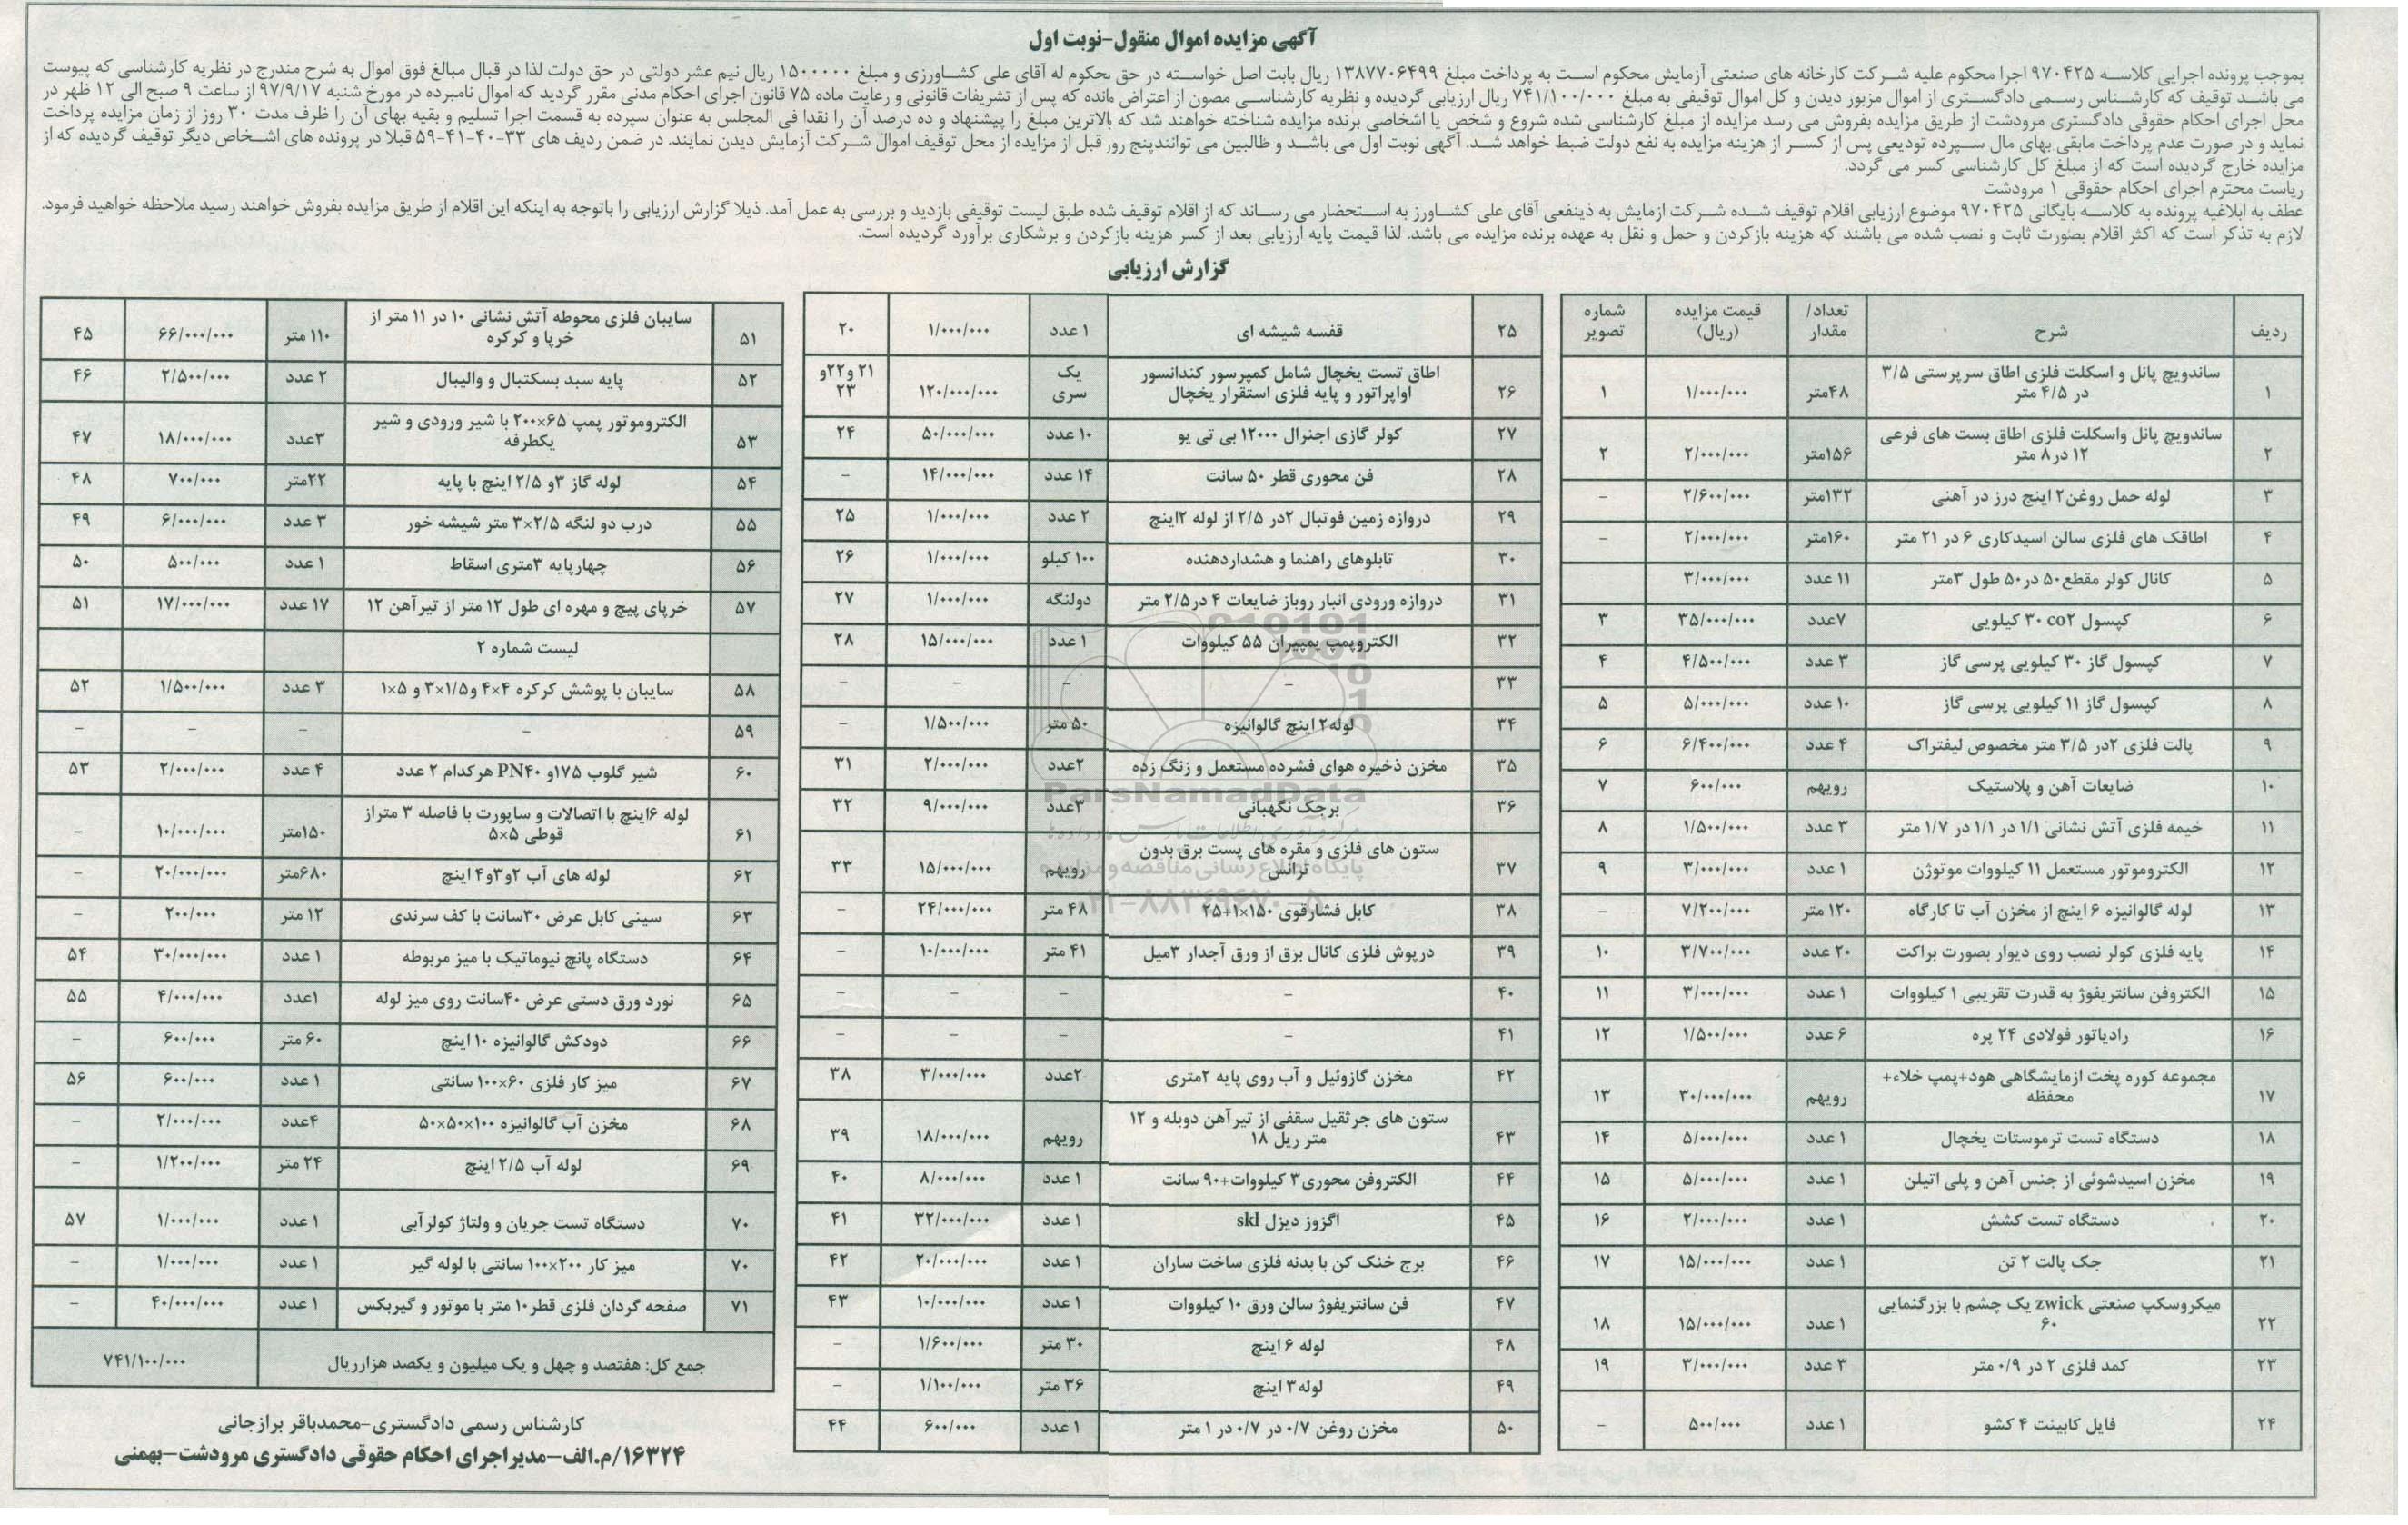 آگهی مزایده اموال منقول-نوبت اول
بموجب پرونده اجرایی کلاسه ۹۷۰۴۲۵ اجرا محکوم علیه شرکت کارخانه های صنعتی آزمایش محکوم است به پرداخت مبلغ ۱۳۸۷۷۰۶۴۹۹ ریال بابت اصل خواسته در حق محکوم له آقای علی کشاورزی و مبلغ ۱۵۰۰۰۰۰ ریال نیم عشر دولتی در حق دولت لذا در قبال مبالغ فوق اموال به شرح مندرج در نظریه کارشناسی که پیوست
می باشد توقیف که کارشناس رسمی دادگستری از اموال مزبور دیدن و کل اموال توقیفی به مبلغ ۷۴۱/۱۰۰/۰۰۰ ریال ارزیابی گردیده و نظریه کارشناسی مصون از اعتراض مانده که پس از تشریفات قانونی و رعایت ماده ۷۵ قانون اجرای احکام مدنی مقرر گردید که اموال نامبرده در مورخ شنبه ۹۷/۹/۱۷ از ساعت ۹ صبح الی ۱۲ ظهر در
محل اجرای احکام حقوقی دادگستری مرودشت از طریق مزایده بفروش می رسد مزایده از مبلغ کارشناسی شده شروع و شخص یا اشخاصی برنده مزایده شناخته خواهند شد که بالاترین مبلغ را پیشنهاد و ده درصد آن را نقدا فی المجلس به عنوان سپرده به قسمت اجرا تسلیم و بقیه بهای آن را ظرف مدت ۳۰ روز از زمان مزایده پرداخت
نماید و در صورت عدم پرداخت مابقی بهای مال سپرده تودیعی پس از کسر از هزینه مزایده به نفع دولت ضبط خواهد شد. آگهی نوبت اول می باشد و طالبین می توانندپنج روز قبل از مزایده از محل توقیف اموال شرکت آزمایش دیدن نمایند. در ضمن ردیف های ۳۳-۴۰-۴۱-۵۹ قبلا در پرونده های اشخاص دیگر توقیف گردیده که از
مزایده خارج گردیده است که از مبلغ کل کارشناسی کسر می گردد.
ریاست محترم اجرای احکام حقوقی ۱ مرودشت
عطف به ابلاغیه پرونده به کلاسه بایگانی ۹۷۰۴۲۵ موضوع ارزیابی اقلام توقیف شده شرکت ازمایش به ذینفعی آقای علی کشاورز به استحضار می رساند که از اقلام توقیف شده طبق لیست توقیفی بازدید و بررسی به عمل آمد. ذیلا گزارش ارزیابی را باتوجه به اینکه این اقلام از طریق مزایده بفروش خواهند رسید ملاحظه خواهید فرمود.
لازم به تذکر است که اکثر اقلام بصورت ثابت و نصب شده می باشند که هزینه بازکردن و حمل و نقل به عهده برنده مزایده می باشد. لذا قیمت پایه ارزیابی بعد از کسر هزینه بازکردن و برشکاری برآورد گردیده است.
گزارش ارزیابی
ردیف شرح تعداد/مقدار قیمت مزایده (ریال) شماره تصویر
۱ ساندویچ پانل و اسکلت فلزی اطاق سرپرستی ۳/۵ در ۴/۵ متر ۴۸متر ۱/۰۰۰/۰۰۰ ۱
۲ ساندویچ پانل واسکلت فلزی اطاق بست های فرعی ۱۲ در۸ متر ۱۵۶متر ۲/۰۰۰/۰۰۰ ۲
۳ لوله حمل روغن۲ اینج درز در آهنی ۱۳۲متر ۲/۶۰۰/۰۰۰ –
۴ اطاقک های فلزی سالن اسیدکاری ۶ در ۲۱ متر ۱۶۰متر ۲/۰۰۰/۰۰۰ –
۵ کانال کولر مقطع۵۰ در۵۰ طول ۳متر ۱۱ عدد ۳/۰۰۰/۰۰۰
۶ کپسول co۲ ۳۰ کیلویی ۷عدد ۳۵/۰۰۰/۰۰۰ ۳
۷ کپسول گاز ۳۰ کیلویی پرسی گاز ۳ عدد ۴/۵۰۰/۰۰۰ ۴
۸ کپسول گاز ۱۱ کیلویی پرسی گاز ۱۰ عدد ۵/۰۰۰/۰۰۰ ۵
۹ پالت فلزی ۲در ۳/۵ متر مخصوص لیفتراک ۴ عدد ۶/۴۰۰/۰۰۰ ۶
۱۰ ضایعات آهن و پلاستیک رویهم ۶۰۰/۰۰۰ ۷
۱۱ خیمه فلزی آتش نشانی ۱/۱ در ۱/۱ در ۱/۷ متر ۳ عدد ۱/۵۰۰/۰۰۰ ۸
۱۲ الکتروموتور مستعمل ۱۱ کیلووات موتوژن ۱ عدد ۳/۰۰۰/۰۰۰ ۹
۱۳ لوله گالوانیزه ۶ اینچ از مخزن آب تا کارگاه ۱۲۰ متر ۷/۲۰۰/۰۰۰ –
۱۴ پایه فلزی کولر نصب روی دیوار بصورت براکت ۲۰ عدد ۳/۷۰۰/۰۰۰ ۱۰
۱۵ الکتروفن سانتریفوژ به قدرت تقریبی ۱ کیلووات ۱ عدد ۳/۰۰۰/۰۰۰ ۱۱
۱۶ رادیاتور فولادی ۲۴ پره ۶ عدد ۱/۵۰۰/۰۰۰ ۱۲
۱۷ مجموعه کوره پخت ازمایشگاهی هود+پمپ خلاء+ محفظه رویهم ۳۰/۰۰۰/۰۰۰ ۱۳
۱۸ دستگاه تست ترموستات یخچال ۱ عدد ۵/۰۰۰/۰۰۰ ۱۴
۱۹ مخزن اسیدشوئی از جنس آهن و پلی اتیلن ۱ عدد ۵/۰۰۰/۰۰۰ ۱۵
۲۰ دستگاه تست کشش ۱ عدد ۲/۰۰۰/۰۰۰ ۱۶
۲۱ جک پالت ۲ تن ۱ عدد ۱۵/۰۰۰/۰۰۰ ۱۷
۲۲ میکروسکپ صنعتی zwick یک چشم با بزرگنمایی ۶۰ ۱ عدد ۱۵/۰۰۰/۰۰۰ ۱۸
۲۳ کمد فلزی ۲ در ۰/۹ متر ۳ عدد ۳/۰۰۰/۰۰۰ ۱۹
۲۴ فایل کابینت ۴ کشو ۱ عدد ۵۰۰/۰۰۰ –
۲۵ قفسه شیشه ای ۱ عدد ۱/۰۰۰/۰۰۰ ۲۰
۲۶ اطاق تست یخچال شامل کمپرسور کندانسور اواپراتور و پایه فلزی استقرار یخچال یک سری ۱۲۰/۰۰۰/۰۰۰ ۲۱ و۲۲و ۲۳
۲۷ کولر گازی اجنرال ۱۲۰۰۰ بی تی یو ۱۰ عدد ۵۰/۰۰۰/۰۰۰ ۲۴
۲۸ فن محوری قطر ۵۰ سانت ۱۴ عدد ۱۴/۰۰۰/۰۰۰ –
۲۹ دروازه زمین فوتبال ۲در ۲/۵ از لوله ۲اینچ ۲ عدد ۱/۰۰۰/۰۰۰ ۲۵
۳۰ تابلوهای راهنما و هشداردهنده ۱۰۰ کیلو ۱/۰۰۰/۰۰۰ ۲۶
۳۱ دروازه ورودی انبار روباز ضایعات ۴ در۲/۵ متر دولنگه ۱/۰۰۰/۰۰۰ ۲۷
۳۲ الکتروپمپ پمپیران ۵۵ کیلووات ۱ عدد ۱۵/۰۰۰/۰۰۰ ۲۸
۳۳ – – – –
۳۴ لوله۲ اینچ گالوانیزه ۵۰ متر ۱/۵۰۰/۰۰۰ –
۳۵ مخزن ذخیره هوای فشرده مستعمل و زنگ زده ۲عدد ۲/۰۰۰/۰۰۰ ۳۱
۳۶ برجک نگهبانی ۳عدد ۹/۰۰۰/۰۰۰ ۳۲
۳۷ ستون های فلزی و مقره های پست برق بدون ترانس رویهم ۱۵/۰۰۰/۰۰۰ ۳۳
۳۸ کابل فشارقوی ۱۵۰×۱+۲۵ ۴۸ متر ۲۴/۰۰۰/۰۰۰ –
۳۹ درپوش فلزی کانال برق از ورق آجدار ۳میل ۴۱ متر ۱۰/۰۰۰/۰۰۰ –
۴۰ – – – –
۴۱ – – – –
۴۲ مخزن گازوئیل و آب روی پایه ۲متری ۲عدد ۳/۰۰۰/۰۰۰ ۳۸
۴۳ ستون های جرثقیل سقفی از تیرآهن دوبله و ۱۲ متر ریل ۱۸ رویهم ۱۸/۰۰۰/۰۰۰ ۳۹
۴۴ الکتروفن محوری۳ کیلووات+۹۰ سانت ۱ عدد ۸/۰۰۰/۰۰۰ ۴۰
۴۵ اگزوز دیزل skl ۱ عدد ۳۲/۰۰۰/۰۰۰ ۴۱
۴۶ برج خنک کن با بدنه فلزی ساخت ساران ۱ عدد ۲۰/۰۰۰/۰۰۰ ۴۲
۴۷ فن سانتریفوژ سالن ورق ۱۰ کیلووات ۱ عدد ۱۰/۰۰۰/۰۰۰ ۴۳
۴۸ لوله ۶ اینچ ۳۰ متر ۱/۶۰۰/۰۰۰ –
۴۹ لوله۳ اینچ ۳۶ متر ۱/۱۰۰/۰۰۰ –
۵۰ مخزن روغن ۰/۷ در ۰/۷ در ۱ متر ۱ عدد ۶۰۰/۰۰۰ ۴۴
۵۱ سایبان فلزی محوطه آتش نشانی ۱۰ در ۱۱ متر از خرپا و کرکره ۱۱۰ متر ۶۶/۰۰۰/۰۰۰ ۴۵
۵۲ پایه سبد بسکتبال و والیبال ۲ عدد ۲/۵۰۰/۰۰۰ ۴۶
۵۳ الکتروموتور پمپ ۶۵×۲۰۰ با شیر ورودی و شیر یکطرفه ۳عدد ۱۸/۰۰۰/۰۰۰ ۴۷
۵۴ لوله گاز ۳و ۲/۵ اینچ با پایه ۲۲متر ۷۰۰/۰۰۰ ۴۸
۵۵ درب دو لنگه ۲/۵×۳ متر شیشه خور ۳ عدد ۶/۰۰۰/۰۰۰ ۴۹
۵۶ چهارپایه ۳متری اسقاط ۱ عدد ۵۰۰/۰۰۰ ۵۰
۵۷ خرپای پیچ و مهره ای طول ۱۲ متر از تیرآهن ۱۲ ۱۷ عدد ۱۷/۰۰۰/۰۰۰ ۵۱
لیست شماره ۲
۵۸ سایبان با پوشش کرکره ۴×۴ و۱/۵×۳ و ۵×۱ ۳ عدد ۱/۵۰۰/۰۰۰ ۵۲
۵۹ – – – –
۶۰ شیر گلوب ۱۷۵و PN۴۰ هرکدام ۲ عدد ۴ عدد ۲/۰۰۰/۰۰۰ ۵۳
۶۱ لوله ۶اینچ با اتصالات و ساپورت با فاصله ۳ متراز قوطی ۵×۵ ۱۵۰متر ۱۰/۰۰۰/۰۰۰ –
۶۲ لوله های آب ۲و۳و۴ اینچ ۶۸۰متر ۲۰/۰۰۰/۰۰۰ –
۶۳ سینی کابل عرض ۳۰سانت با کف سرندی ۱۲ متر ۲۰۰/۰۰۰ –
۶۴ دستگاه پانچ نیوماتیک با میز مربوطه ۱ عدد ۳۰/۰۰۰/۰۰۰ ۵۴
۶۵ نورد ورق دستی عرض ۴۰سانت روی میز لوله ۱عدد ۴/۰۰۰/۰۰۰ ۵۵
۶۶ دودکش گالوانیزه ۱۰ اینچ ۶۰ متر ۶۰۰/۰۰۰ –
۶۷ میز کار فلزی ۶۰×۱۰۰ سانتی ۱ عدد ۶۰۰/۰۰۰ ۵۶
۶۸ مخزن آب گالوانیزه ۱۰۰×۵۰×۵۰ ۴عدد ۲/۰۰۰/۰۰۰ –
۶۹ لوله آب ۲/۵ اینچ ۲۴ متر ۱/۲۰۰/۰۰۰ –
۷۰ دستگاه تست جریان و ولتاژ کولرآبی ۱ عدد ۱/۰۰۰/۰۰۰ ۵۷
۷۰ میز کار ۲۰۰×۱۰۰ سانتی با لوله گیر ۱ عدد ۱/۰۰۰/۰۰۰ –
۷۱ صفحه گردان فلزی قطر۱۰ متر با موتور و گیربکس ۱ عدد ۴۰/۰۰۰/۰۰۰ –
جمع کل: هفتصد و چهل و یک میلیون و یکصد هزارریال ۷۴۱/۱۰۰/۰۰۰
کارشناس رسمی دادگستری-محمدباقر برازجانی
۱۶۳۲۴/م.الف-مدیراجرای احکام حقوقی دادگستری مرودشت-بهمنی
ParsNamadData
پایگاه اطلاع رسانی مناقصه و مزایده